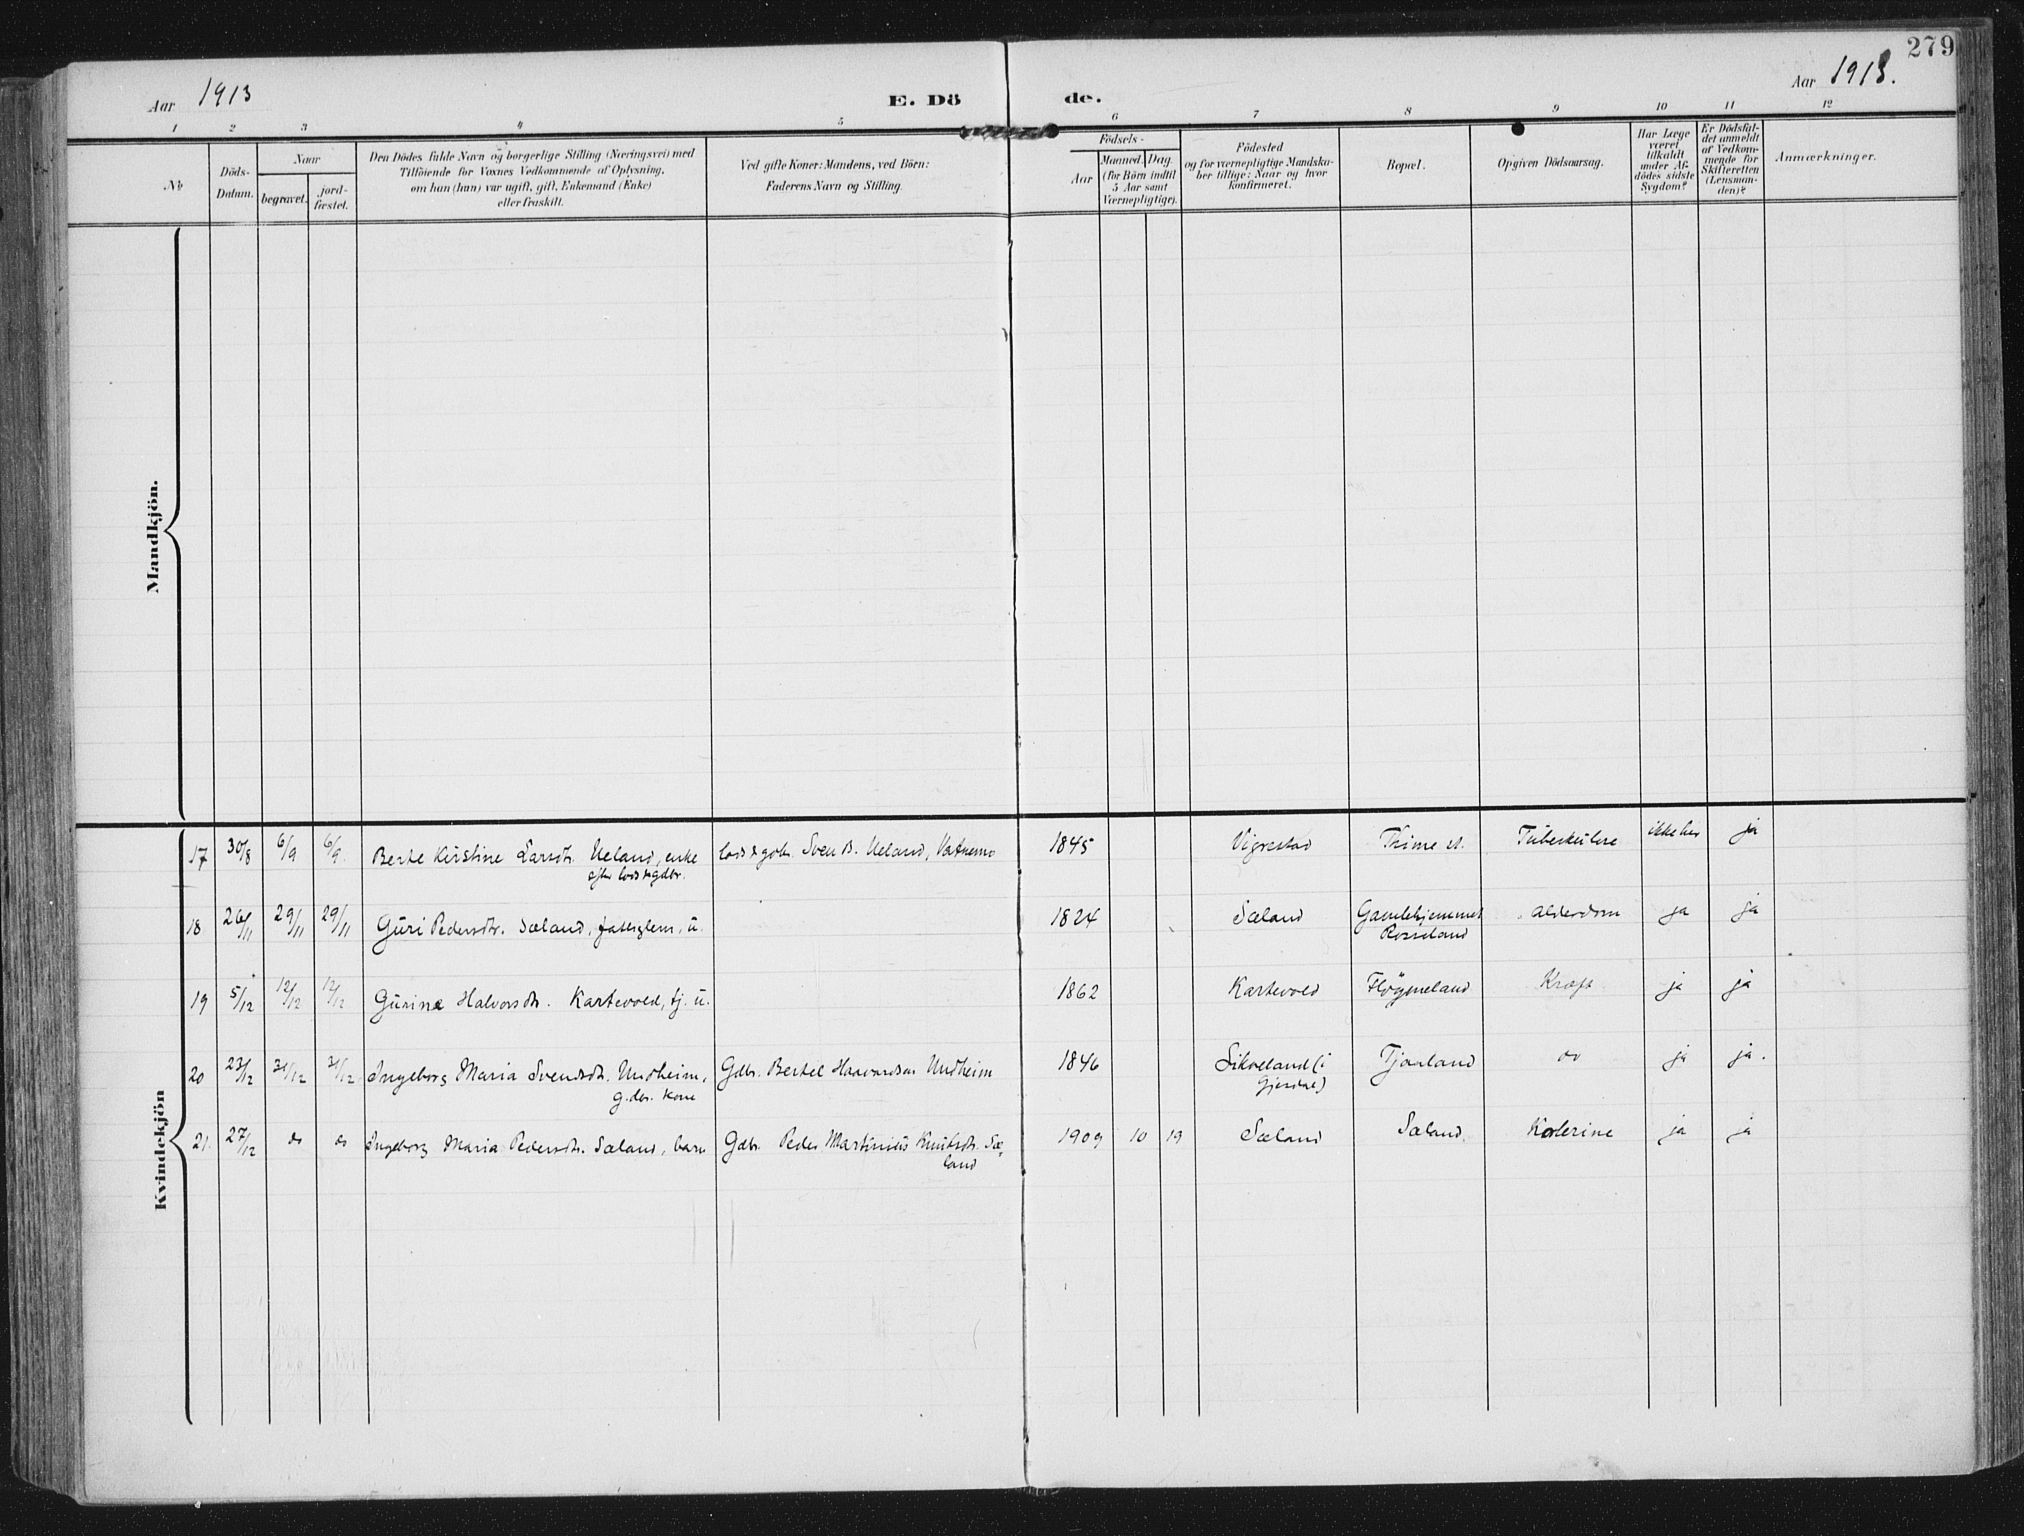 279
Aar 1913
E. Dö de.
Aar 1913.
1 2 3 4 5 6 7 8 9 10 11 12
No
Döds-
Datum.
Naar
begravet. jord-
fæstet.
Den Dödes fulde Navn og borgerlige Stilling (Næringsvei) med
Tilföiende for Voxnes Vedkommende af Oplysning,
om han (hun) var ugift, gift, Enkemand (Enke)
eller fraskilt.
Ved gifte Koner: Mandens, ved Börn:
Faderens Navn og Stilling.
Födsels-
Aar
Maaned Dag.
(for Börn indtil
5 Aar samt
Værnepligtige).
Födested
og for værnepligtige Mandska-
ber tillige: Naar og hvor
konfirmeret.
Bopæl.
Opgiven Dödsaarsag.
Har Læge
været
tilkaldt
under Af-
dödes sidste
Sygdom?
Er Dödsfal-
det anmeldt
af Vedkom-
mende for
Skifteretten
(Lensman-
den)?
Anmærkninger.
Mandkjön.
Kvindekjön
17 30/8 6/9 6/9. Berte Kirstine Larsdtr. Ueland, enke Sven B. Ueland, 1845 Vigrestad Time st. Tuberkulose ikke her ja
efter
18 26/11 29/11 29/11 Guri Pedersdtr. Sæland, fattiglem, u. 1824 Sæland Gamlehjemmet Alderdom ja ja
Rosseland
19 5/12 12/12 12/12 Gurine Halvorsdtr. Kartevold, tj. u. 1862 Kartevold Höyneland Kræft ja ja
20 23/12 31/12 31/12 Ingeborg Maria Svendsdtr. Undheim, Gdbr. Bertel Haavardsen Undheim 1846 Sikveland (i Tjaaland do ja ja.
g.dbr. kone Gjesdal)
21. 27/12 do do Ingeborg Maria Pedersdtr. Sæland, barn Gdbr. Peder Martinius Knutsdtr. Sæ-
land
1909 10 19 Sæland Sæland. Kolerine ja ja